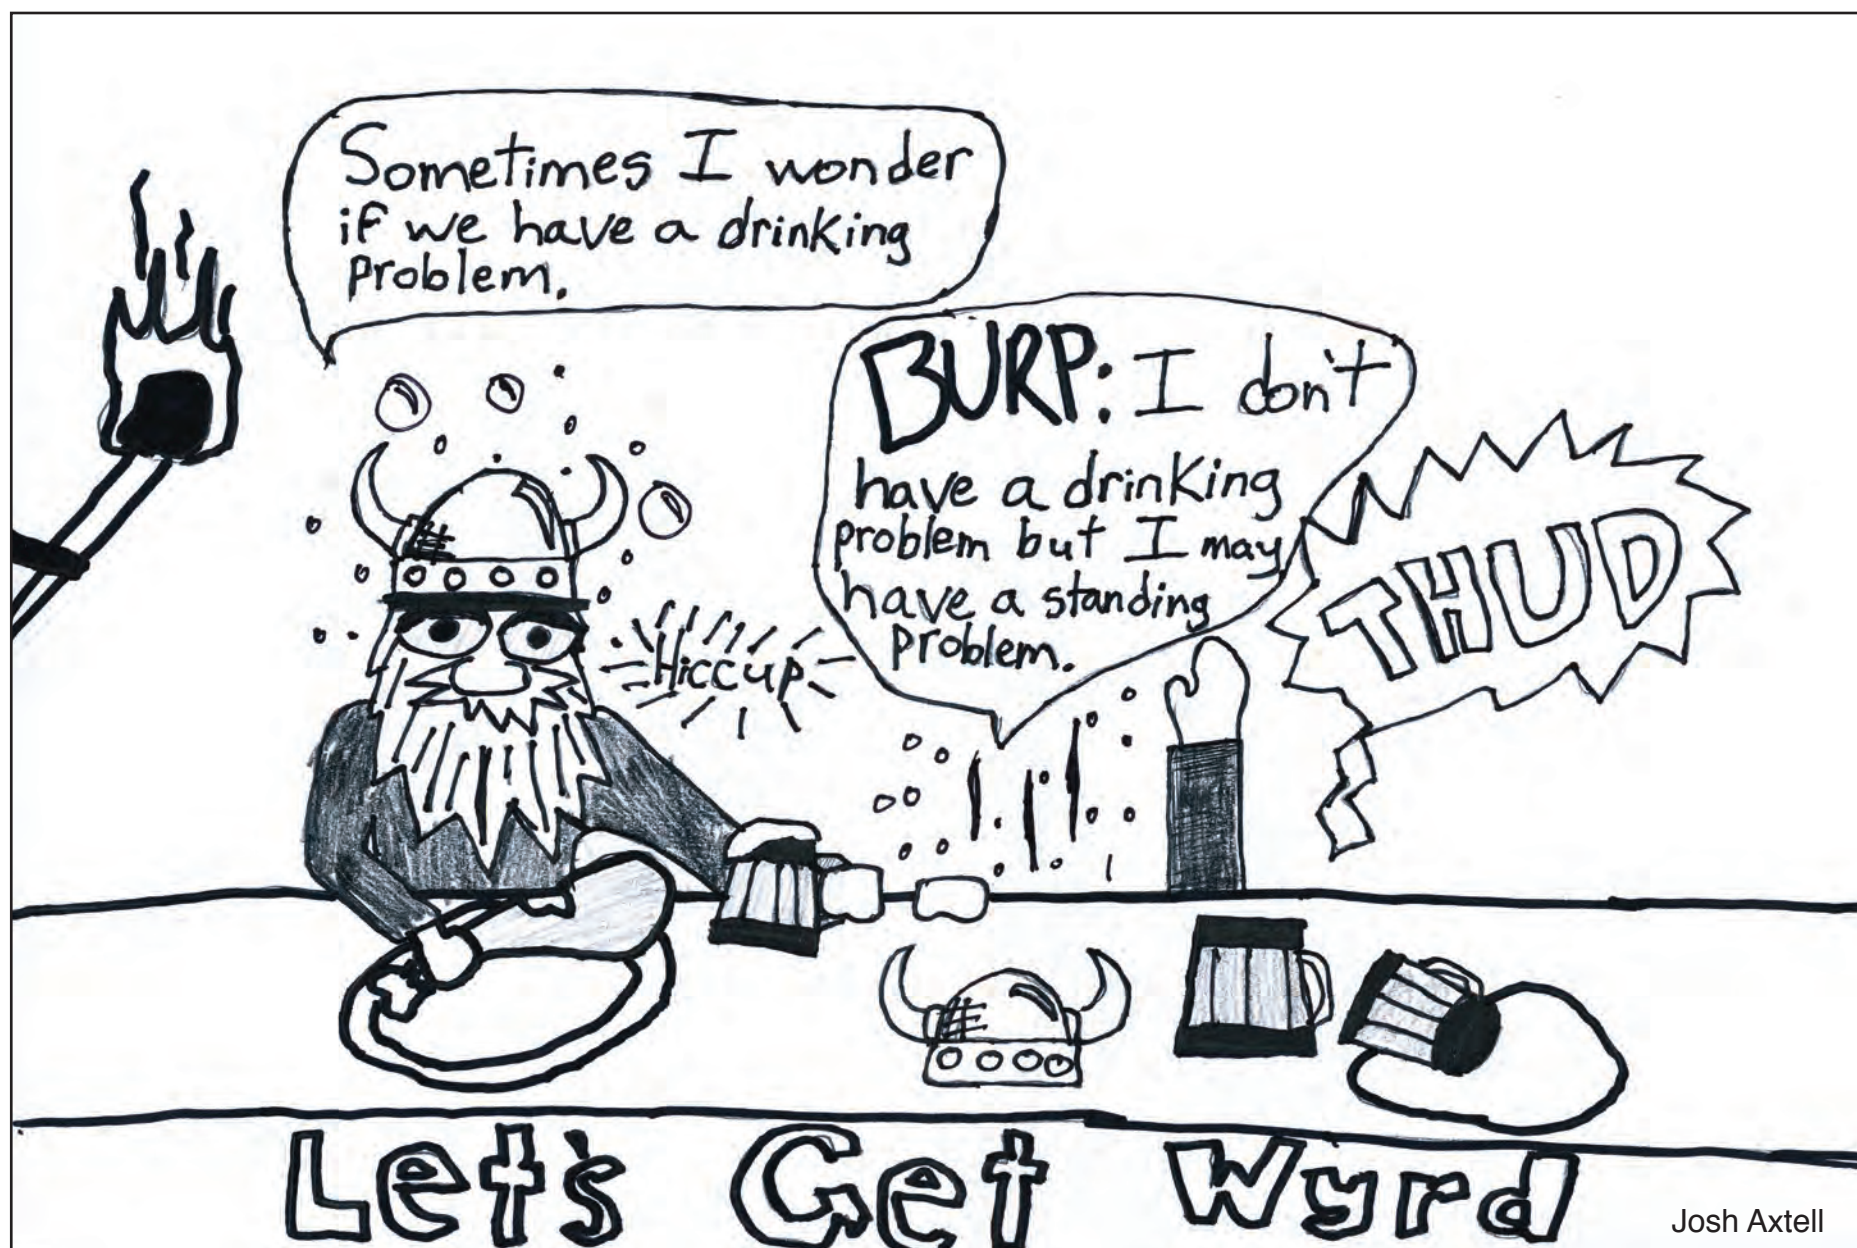 Sometimes I wonder
if we have a drinking
problem.
BURP: I don't
have a drinking
problem but I may
have a standing
problem.
THUD
Hiccup
Let's Get Wyrd
Josh Axtell